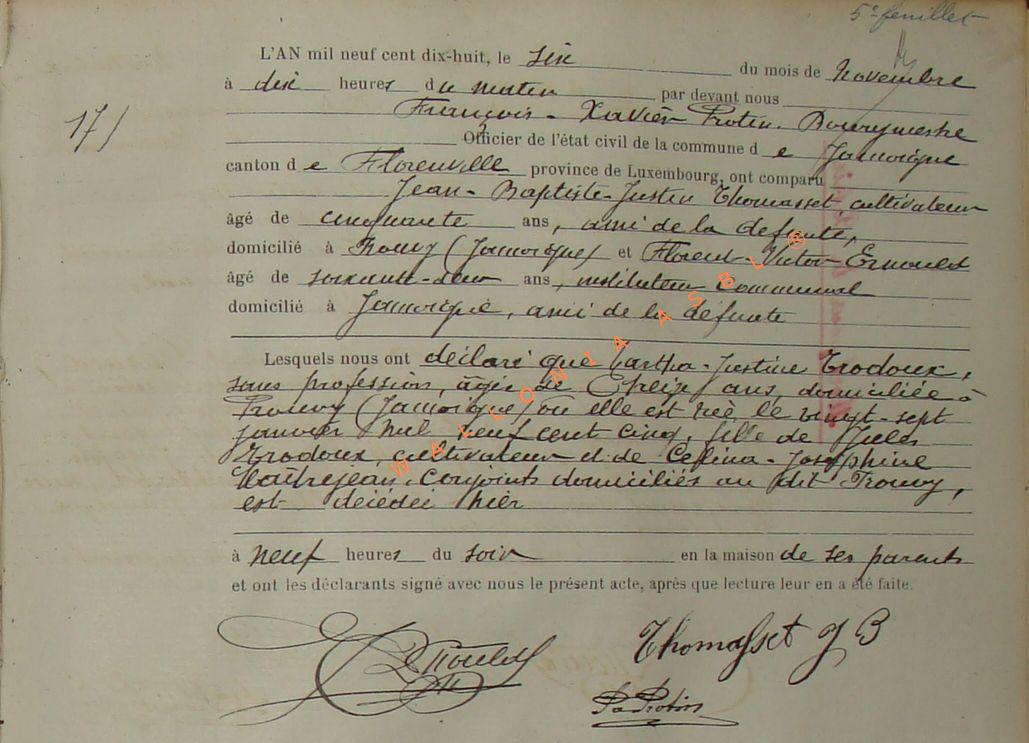 5e feuillet
17/
L'AN mil neuf cent dix-huit, le six du mois de Novembre
à dix heures du matin par devant nous
François-Xavier Protin, Bourgmestre
Officier de l'état civil de la commune de Jamoigne
canton de Florenville province de Luxembourg, ont comparu
Jean-Baptiste-Justin Thomasset cultivateur
âgé de cinquante ans, ami de la défunte,
domicilié à Prouvy (Jamoigne) et Florent-Victor
âgé de soixante-deux ans, instituteur communal
domicilié à Jamoigne, ami de la défunte
Lesquels nous ont déclaré que Justine Trodoux,
sans profession, âgée de treize ans, domiciliée à
Prouvy (Jamoigne) où elle est née le vingt-sept
janvier mil neuf cent cinq, fille de Jules
Trodoux, cultivateur et de Célina-Joséphine
Maîtrejean, conjoints domiciliés au dit Prouvy,
est décédée hier
à neuf heures du soir en la maison de ses parents
et ont les déclarants signé avec nous le présent acte, après que lecture leur en a été faite.
Thomasset J B
Protin
WALLONIA ASBL